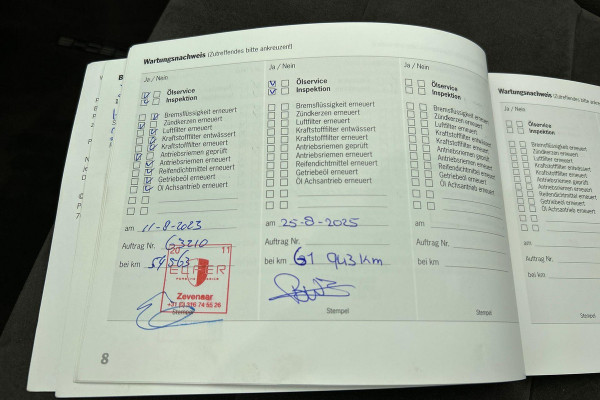 Wartungsnachweis (Zutreffendes bitte ankreuzen!)
Ja / Nein
Ölservice
Inspektion
Bremsflüssigkeit erneuert
Zündkerzen erneuert
Luftfilter erneuert
Kraftstofffilter entwässert
Kraftstofffilter erneuert
Antriebsriemen geprüft
Antriebsriemen erneuert
Reifendichtmittel erneuert
Getriebeöl erneuert
Öl Achsantrieb erneuert
am 11-8-2023
Auftrag Nr. G3210
bei km 54563
20 11
Zevenaar
Stempel
8
Ja / Nein
Ölservice
Inspektion
Bremsflüssigkeit erneuert
Zündkerzen erneuert
Luftfilter erneuert
Kraftstofffilter entwässert
Kraftstofffilter erneuert
Antriebsriemen geprüft
Antriebsriemen erneuert
Reifendichtmittel erneuert
Getriebeöl erneuert
Öl Achsantrieb erneuert
am 25-8-2025
Auftrag Nr.
bei km 61 943 km
Stempel
Ja / Nein
Ölservice
Inspektion
Bremsflüssigkeit erneuert
Zündkerzen erneuert
Luftfilter erneuert
Kraftstofffilter entwässert
Kraftstofffilter erneuert
Antriebsriemen geprüft
Antriebsriemen erneuert
Reifendichtmittel erneuert
Getriebeöl erneuert
Öl Achsantrieb erneuert
am
Auftrag Nr.
bei km
Stempel
Wartungsnachweis (Zutreffendes bitte
Ja / Nein
Ölservice
Inspektion
Bremsflüssigkeit erneuert
Zündkerzen erneuert
Luftfilter erneuert
Kraftstofffilter entwässert
Kraftstofffilter erneuert
Antriebsriemen geprüft
Antriebsriemen erneuert
Reifendichtmittel erneuert
Getriebeöl erneuert
Öl Achsantrieb erneuert
am
Auftrag Nr.
bei km
Stempel